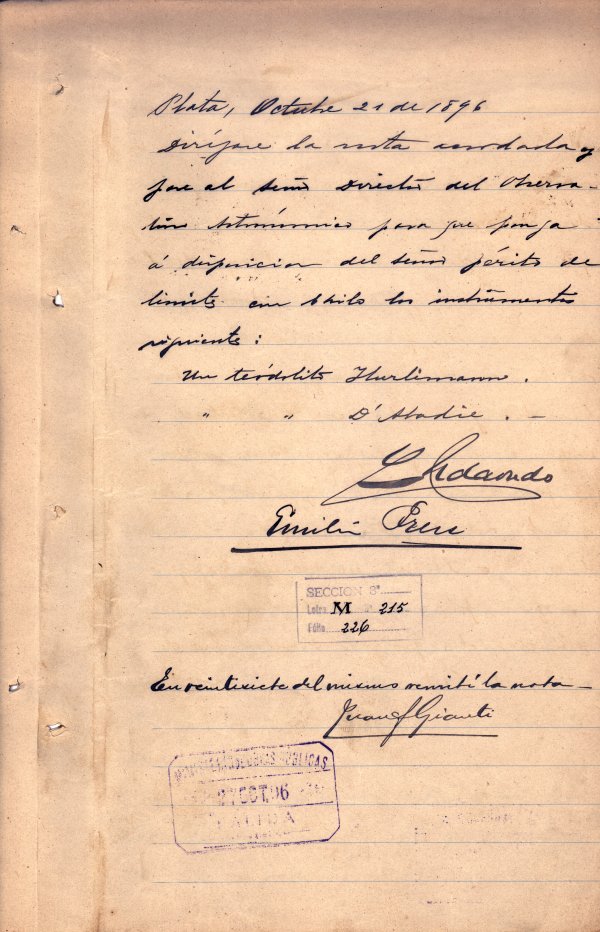 Plata, Octubre 21 de 1896
Diríjase la nota acordada y
pase al señor Director del Observa-
torio Astronómico para que ponga
á disposicion del señor périto de
limites con Chile los instrumentos
siguientes:
Un teódolito Hurlimann.
" " D'Abadie. -
Emilio Frers
SECCION 3ª
Letra M Nº 215
Fólio 226
En veintisiete del mismo remití la nota-
Juan J Gianti
OBRAS PUBLICAS
27 OCT. 96
SALIDA